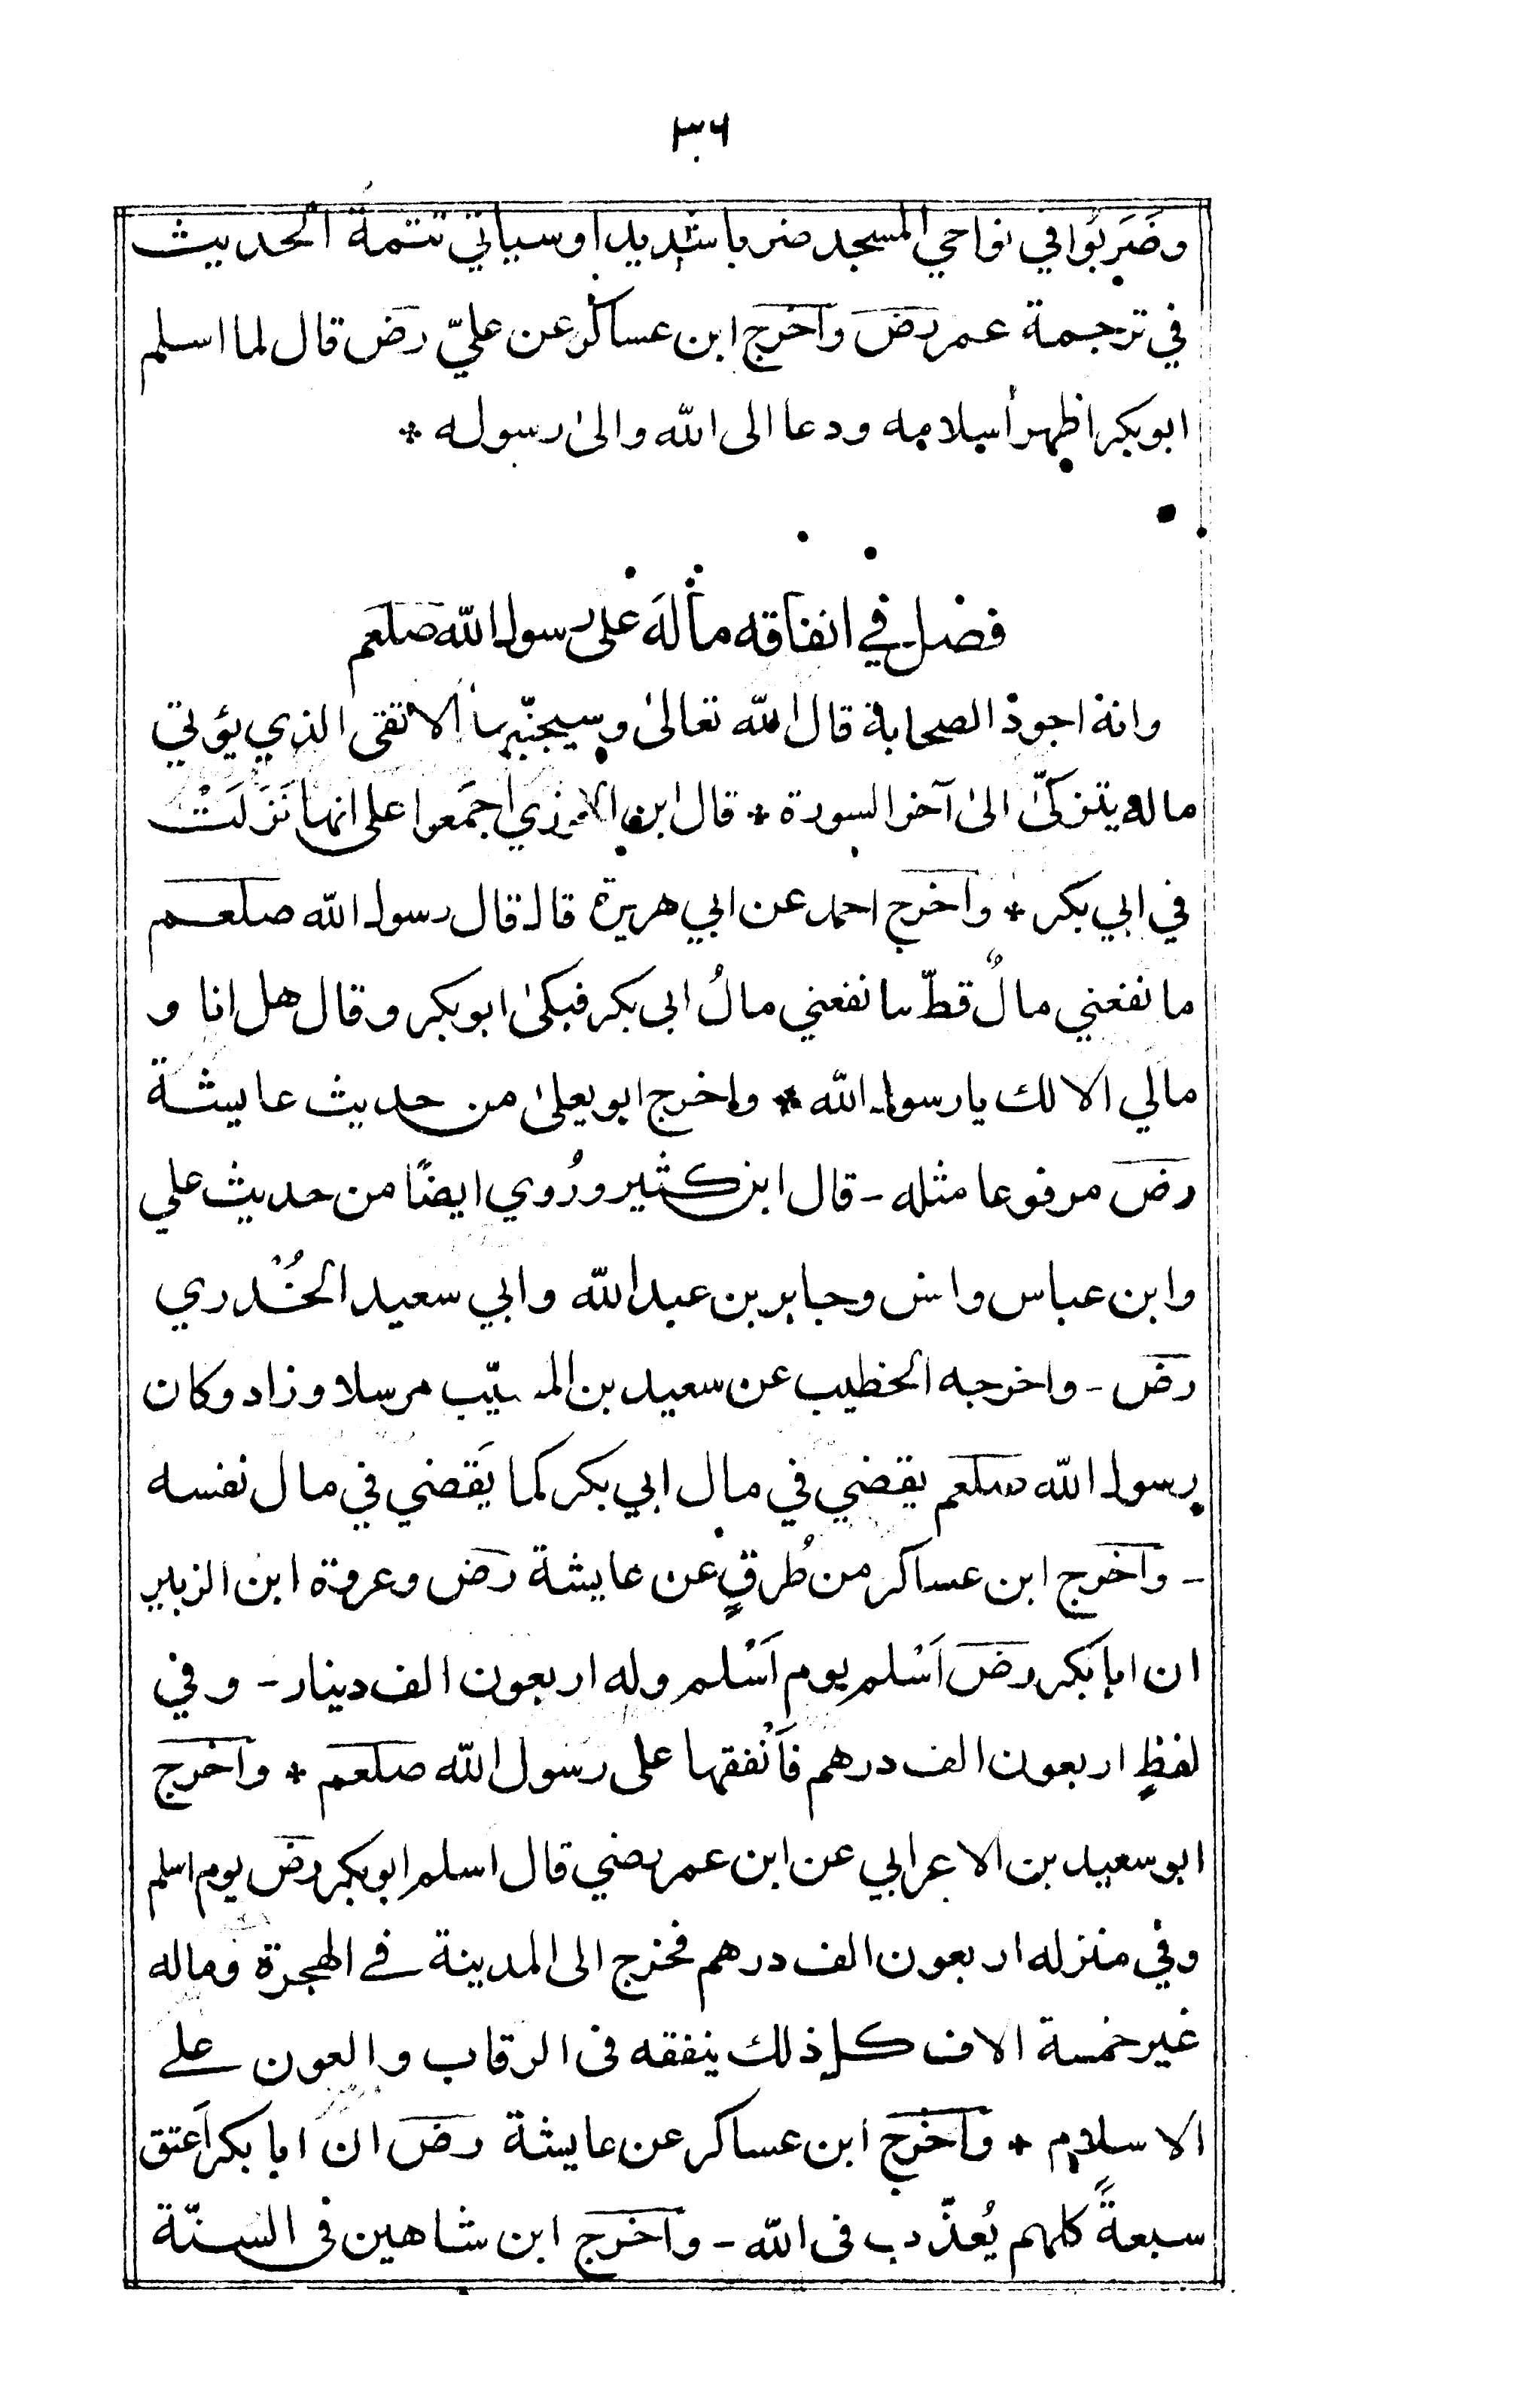 ٣٦
وضَرَبُوا في نواحي المسجد ضربا شديدا وسياتي تتمة الحديث
في ترجمة عمر رضؔ واخرج ابن عساكر عن عليّ رضؔ قال لما اسلم
ابوبكر اظهر اسلامه ودعا الى الله والىٰ رسوله *
فصل في انفاقه ماله على رسول الله صلعم
وانه اجود الصحابة قال الله تعالىٰ وسيجنّبها الاتقى الذي يؤتي
ماله يتزكّىٰ الىٰ آخر السورة * قال ابن الجوزي اجمَعوا على انها نَزَلَتْ
في ابي بكر * واخرج احمد عن ابي هريرة قال قال رسول الله صلعم
ما نفعني مالٌ قطّ ما نفعني مالُ ابى بكر فبكىٰ ابوبكر وقال هل انا و
مالي الا لك يا رسول الله * واخرج ابو يعلىٰ من حديث عايشة
رضؔ مرفوعا مثله - قال ابن كثير ورُوي ايضًا من حديث علي
وابن عباس وانس وجابر بن عبدالله وابي سعيد الخُدري
رضؔ - واخرجه الخطيب عن سعيد بن المسيّب مرسلا وزاد وكان
رسول الله صلعم يقضي في مال ابي بكر كما يَقضي في مال نفسه
- واخرج ابن عساكر من طُرقٍ عن عايشة رضؔ وعروة ابن الزبير
ان ابابكر رضؔ اَسْلم يوم اَسْلم وله اربعون الف دينار - وفي
لفظٍ اربعون الف درهم فاَنْفقها على رسول الله صلعم * واخرج
ابو سعيد بن الاعرابي عن ابن عمر رضي قال اسلم ابوبكر رضؔ يوم اسلم
وفي منزله اربعون الف درهم فخرج الى المدينة في الهجرة وماله
غير خمسة الاف كل ذلك ينفقه فى الرقاب والعون على
الاسلام * واخرج ابن عساكر عن عايشة رضؔ ان ابابكر اَعتق
سبعةً كلهم يُعذّب فى الله - واخرج ابن شاهين فى السنّة